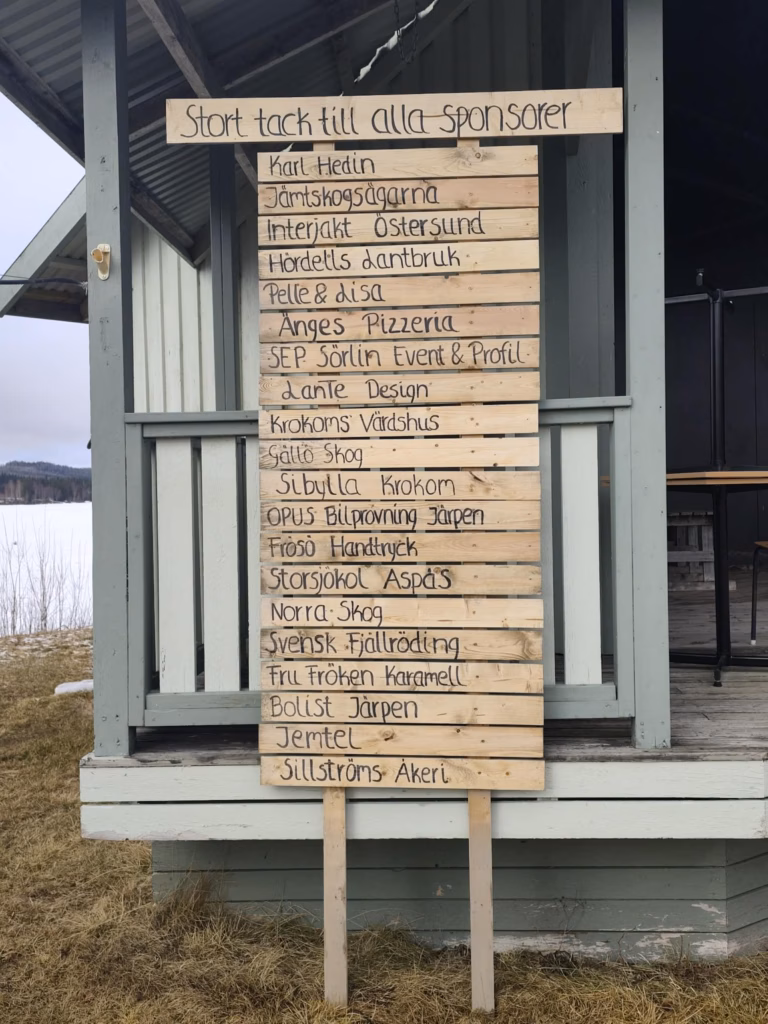 Stort tack till alla sponsorer
Karl Hedin
Jämtskogsågarna
Interjakt Östersund
Hördells Lantbruk
Pelle & Lisa
Änges Pizzeria
SEP Sörlin Event & Profil
LanTe Design
Krokoms Värdshus
Gällö Skog
Sibylla Krokom
OPUS Bilprovning Järpen
Frösö Handtryck
Storsjököl Aspås
Norra Skog
Svensk Fjällröding
Fru Fröken Karamell
Bolist Järpen
Jemtel
Sillströms Åkeri